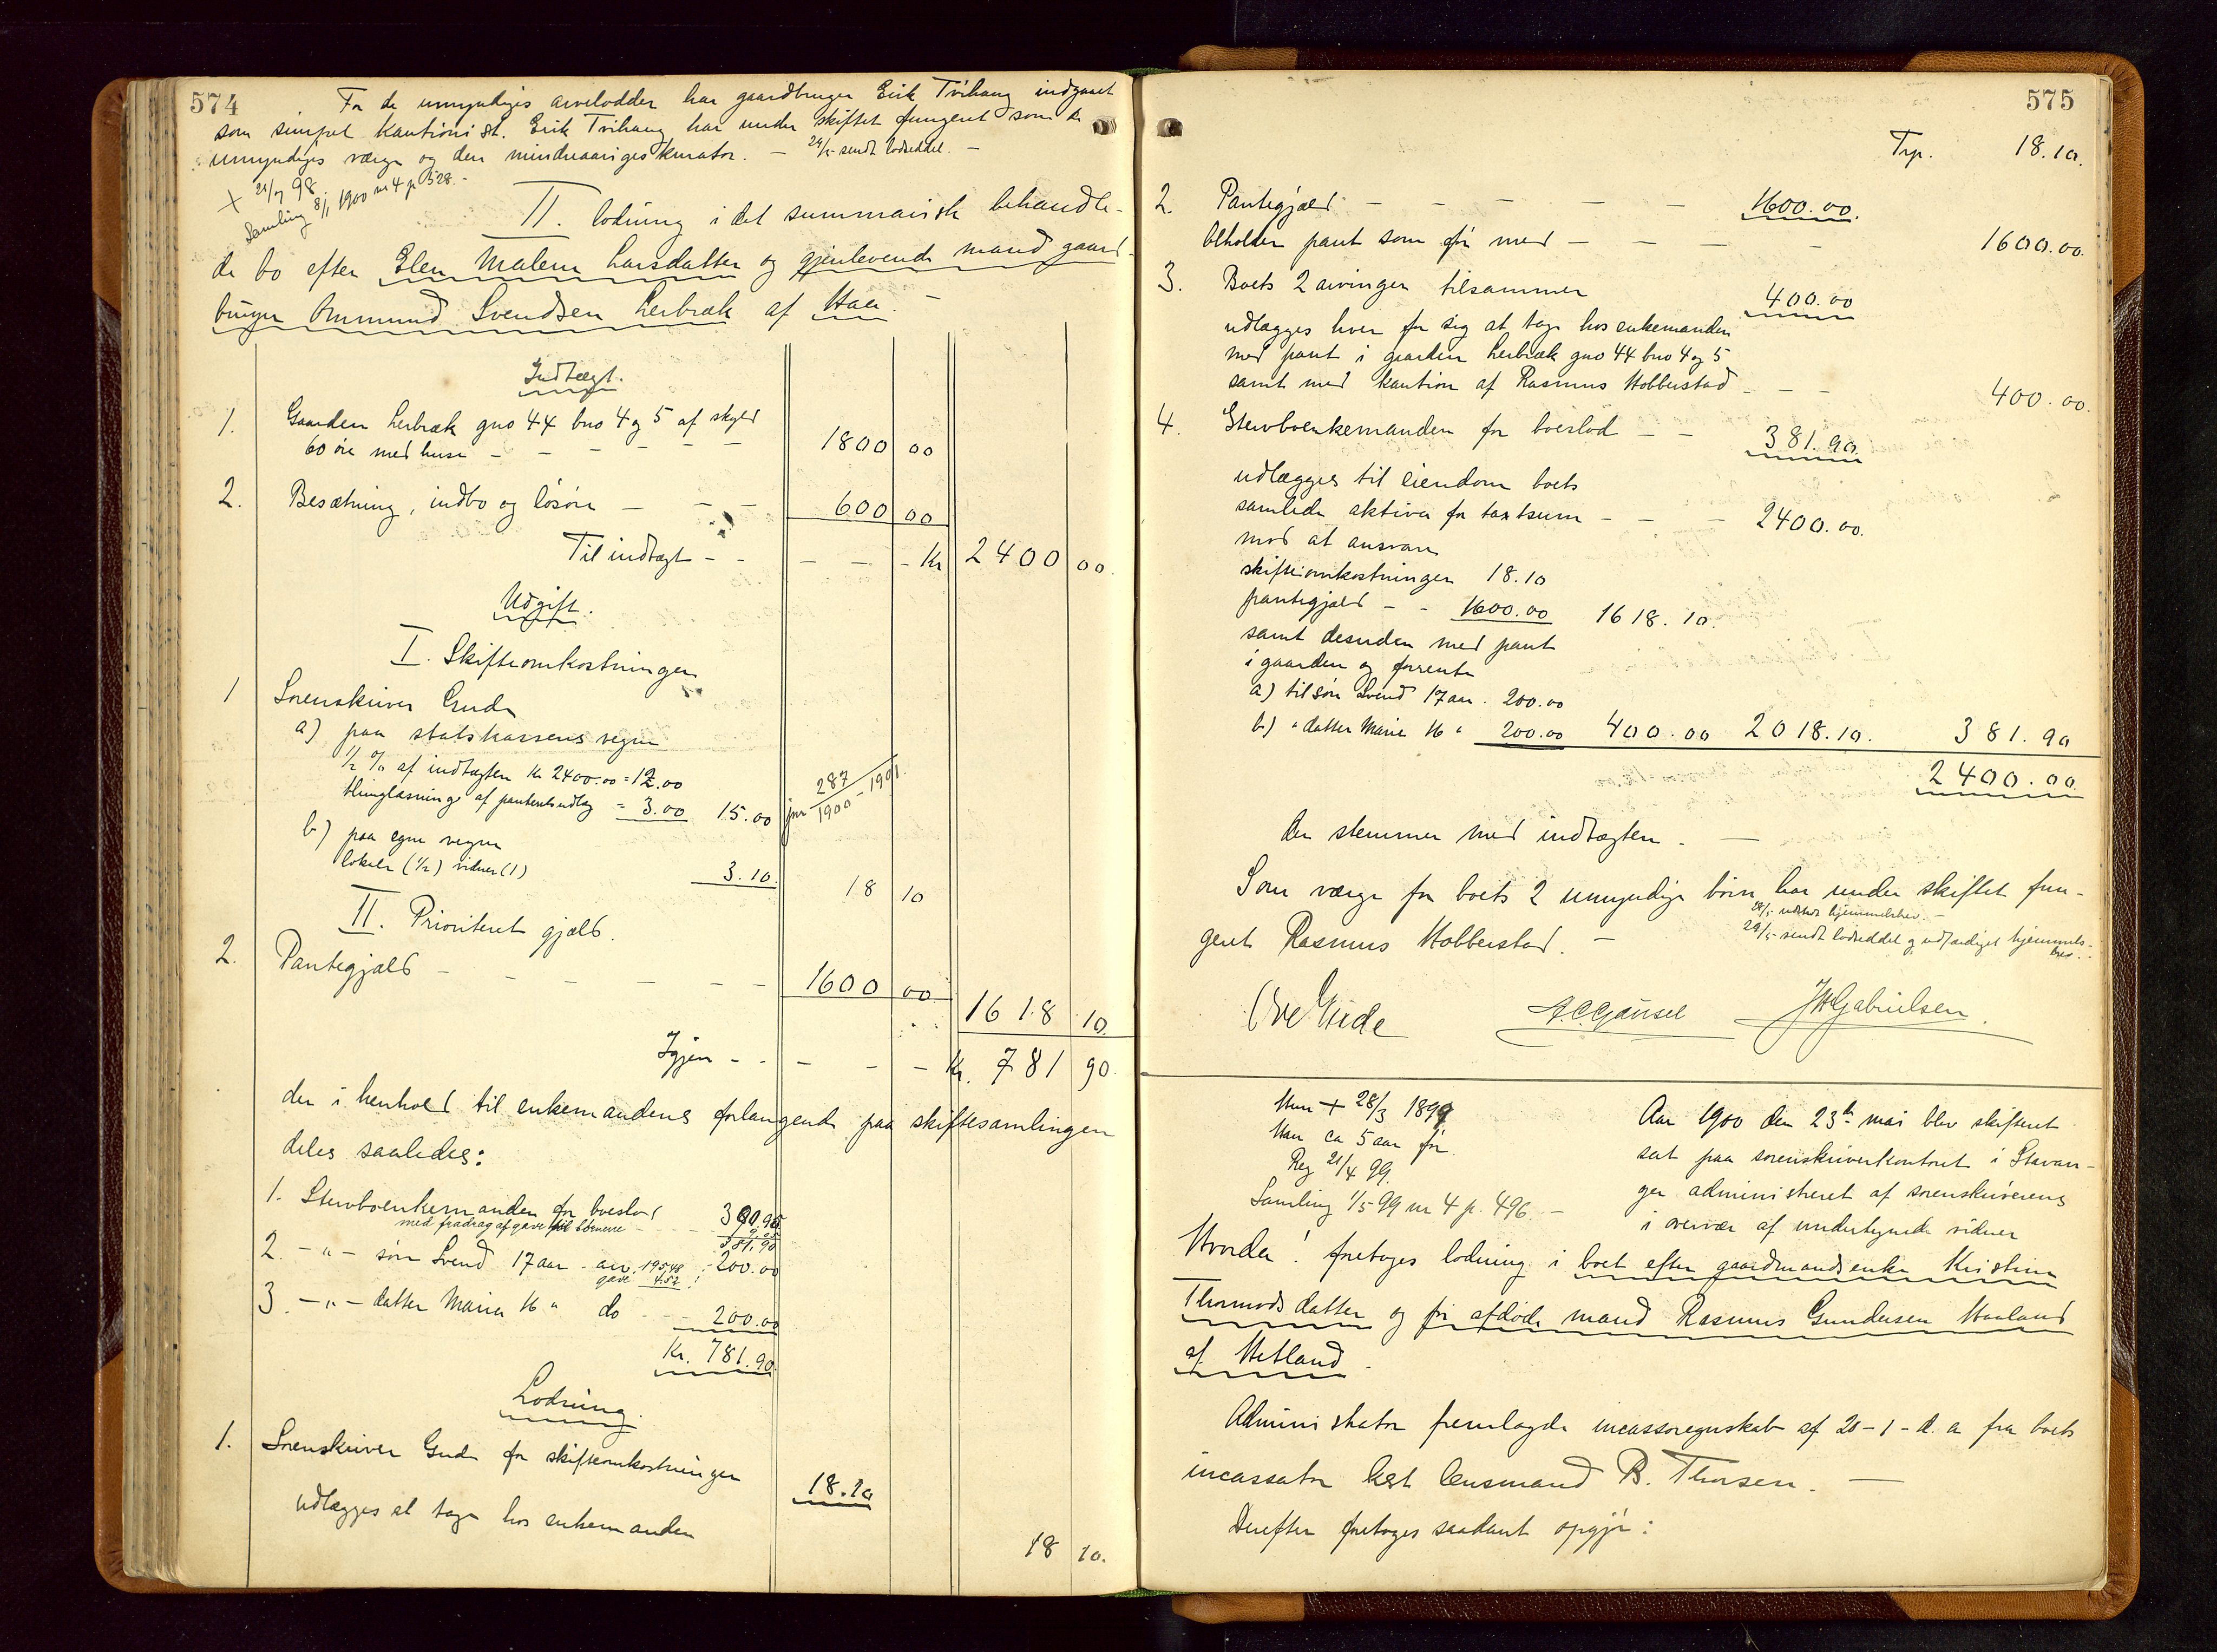 574
For de umyndiges arvelodder har gaardbruger Erik Tvihaug indgaaet
som simpel kautionist. Erik Tvihaug har under skiftet fungeret som de
umyndiges værge og den mindreaariges kurator. — 29/5 sendt lodseddel. —
+ 21/7 98.
Samling 8/1 1900 nr 4 p 528. -
II. lodning i det summarisk behandle-
de bo efter Elen Malene Larsdatter og gjenlevende mand gaard-
bruger Ommund Svendsen Lerbræk af Haa. —
Indtægt.
1. Gaarden Lerbræk gno 44 bno 4 og 5 af skyld
60 øre med huse - - - - - 1800 00
2. Besætning, indbo og løsøre - - - 600 00
Til indtægt - - - - - Kr 2400 00.
Udgift.
I. Skifteomkostninger
1 Sorenskriver Gude
a) paa statskassens vegne
1/2 % af indtægten Kr 2400.00 = 12.00
thinglæsning af panteudlæg = 3.00 15.00 jnr 287/1900-1901.
b) paa egne vegne
lokale (1/2) vidner (1) 3.10. 18 10
II. Prioriteret gjæld.
2. Pantegjæld - - - - - - 1600 00
1618 10.
Igjen - - - - - Kr. 781 90.
der i henhold til enkemandens forlangende paa skiftesamlingen
deles saaledes:
1. Stervboenkemanden for boeslod 390.95
med fradrag af gave til børnene - - - 9.05
381.90
2. - " - søn Svend 17 aar - arv 195.48
gave 4.52 : 200.00
3. - " - datter Marie 16 " do - - 200.00
Kr. 781.90.
Lodning.
1. Sorenskriver Gude for skifteomkostninger 18.10
udlægges at tage hos enkemanden
18 10.
575
Trp. 18.10.
2. Pantegjæld - - - - - 1600.00.
beholder pant som før med - - - - 1600.00.
3. Boets 2 arvinger tilsammen 400.00
udlægges hver for sig at tage hos enkemanden
med pant i gaarden Lerbræk gno 44 bno 4 og 5
samt med kaution af Rasmus Hobberstad - - - 400.00.
4. Stervboenkemanden for boeslod - - 381.90.
udlægges til eiendom boets
samlede aktiva for taxtsum - - - 2400.00.
mod at ansvare
skifteomkostninger 18.10
pantegjæld - - 1600.00 1618.10.
samt desuden med pant
i gaarden og forrente
a) til søn Svend 17 aar. 200.00
b) " datter Marie 16 " 200.00 400.00 2018.10. 381.90
2400.00.
der stemmer med indtægten. —
Som værge for boets 2 umyndige børn har under skiftet fun-
28/5 udstedt hjemmelsbrev. -
geret Rasmus Hobberstad. —
29/5 sendt lodseddel og udfærdiget hjemmels-
brev. -
Ove Gude A.C. Gansel J H Gabrielsen.
Hun + 28/3 1899
Han ca 5 aar før.
Reg 21/4 99.
Samling 1/5 99 nr 4 p. 496. -
Aar 1900 den 23de mai blev skifteret
sat paa sorenskriverkontoret i Stavan-
ger administreret af sorenskriveren
i overvær af undertegnede vidner
Hvorda! foretoges lodning i boet efter gaardmandsenke Kristine
Thormodsdatter og før afdøde mand Rasmus Gundersen Haaland
af Hetland.
Administrator fremlagde incassoregnskab af 20-1-d. a fra boets
incassator lensmand B. Thorsen. —
Derefter foretoges saadant opgjør: